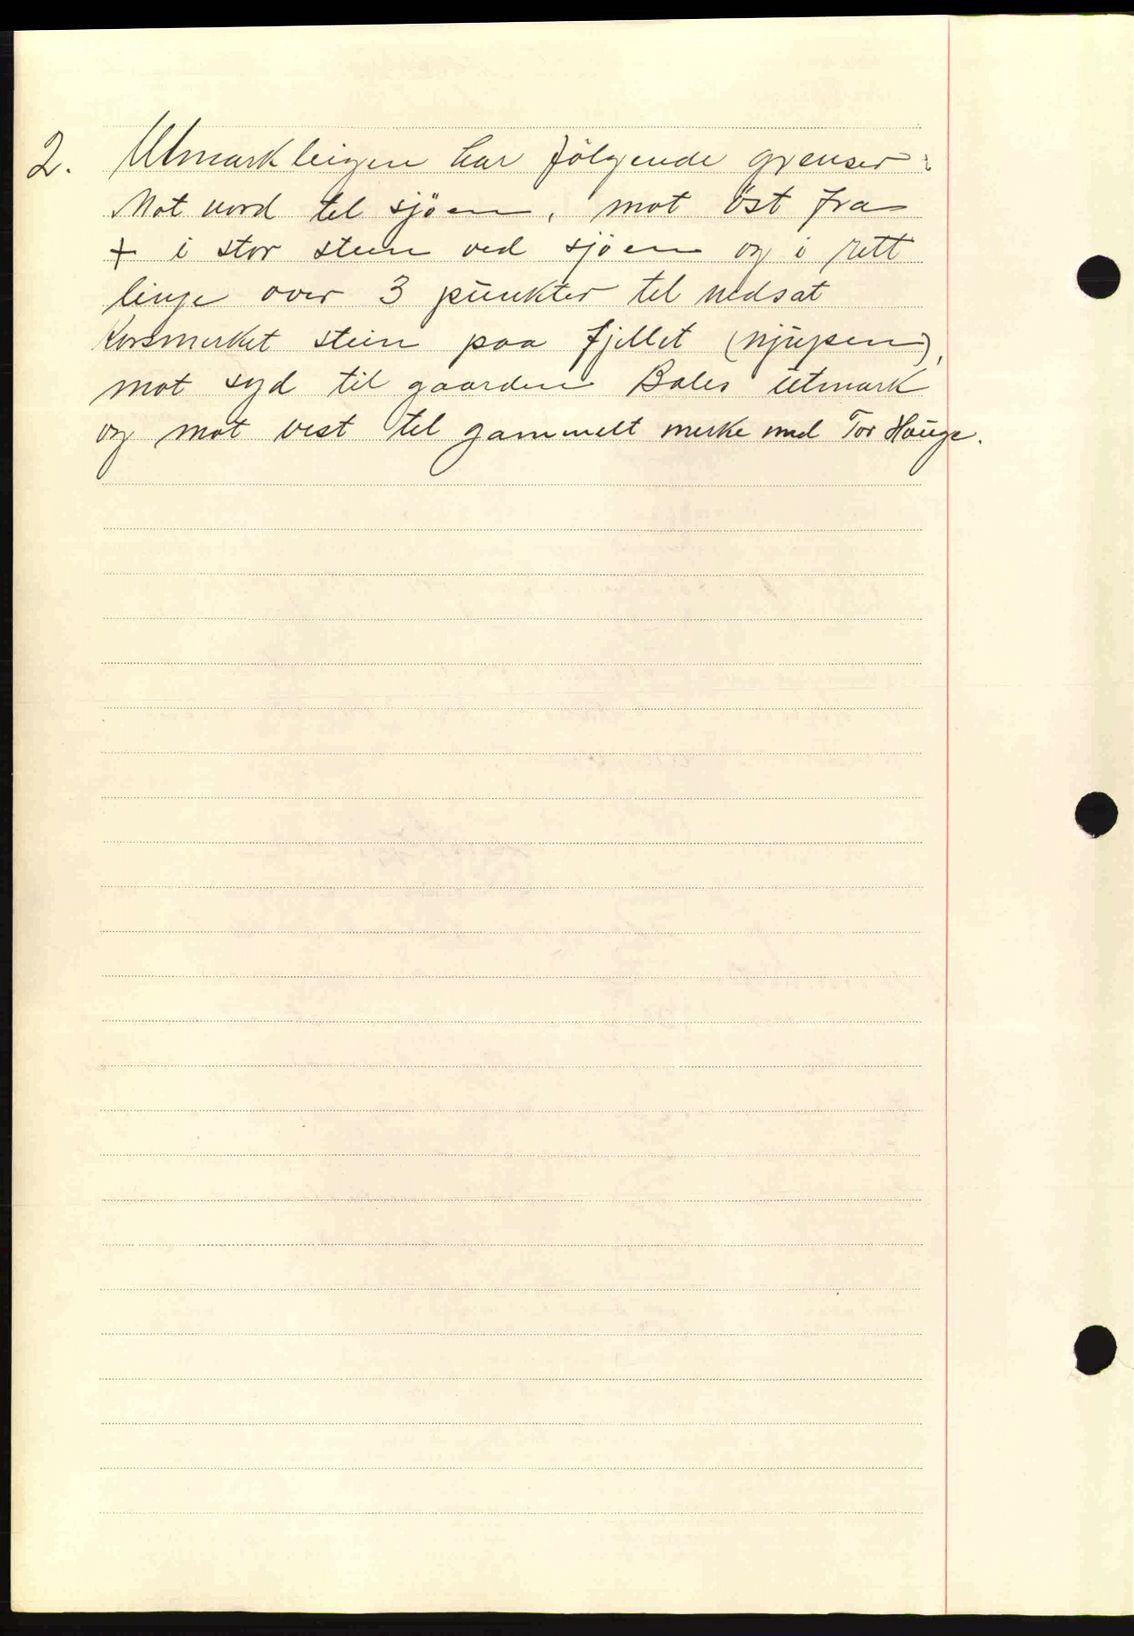 2. Utmarkteigen har følgende grenser:
Mot nord til sjöen, mot öst fra
+ i stor stein ved sjöen og i rett
linje over 3 punkter til nedsat
korsmerket stein paa fjellet (njupen),
mot syd til gaarden Boles utmark
og mot vest til gammelt merke med Tor Hauge.